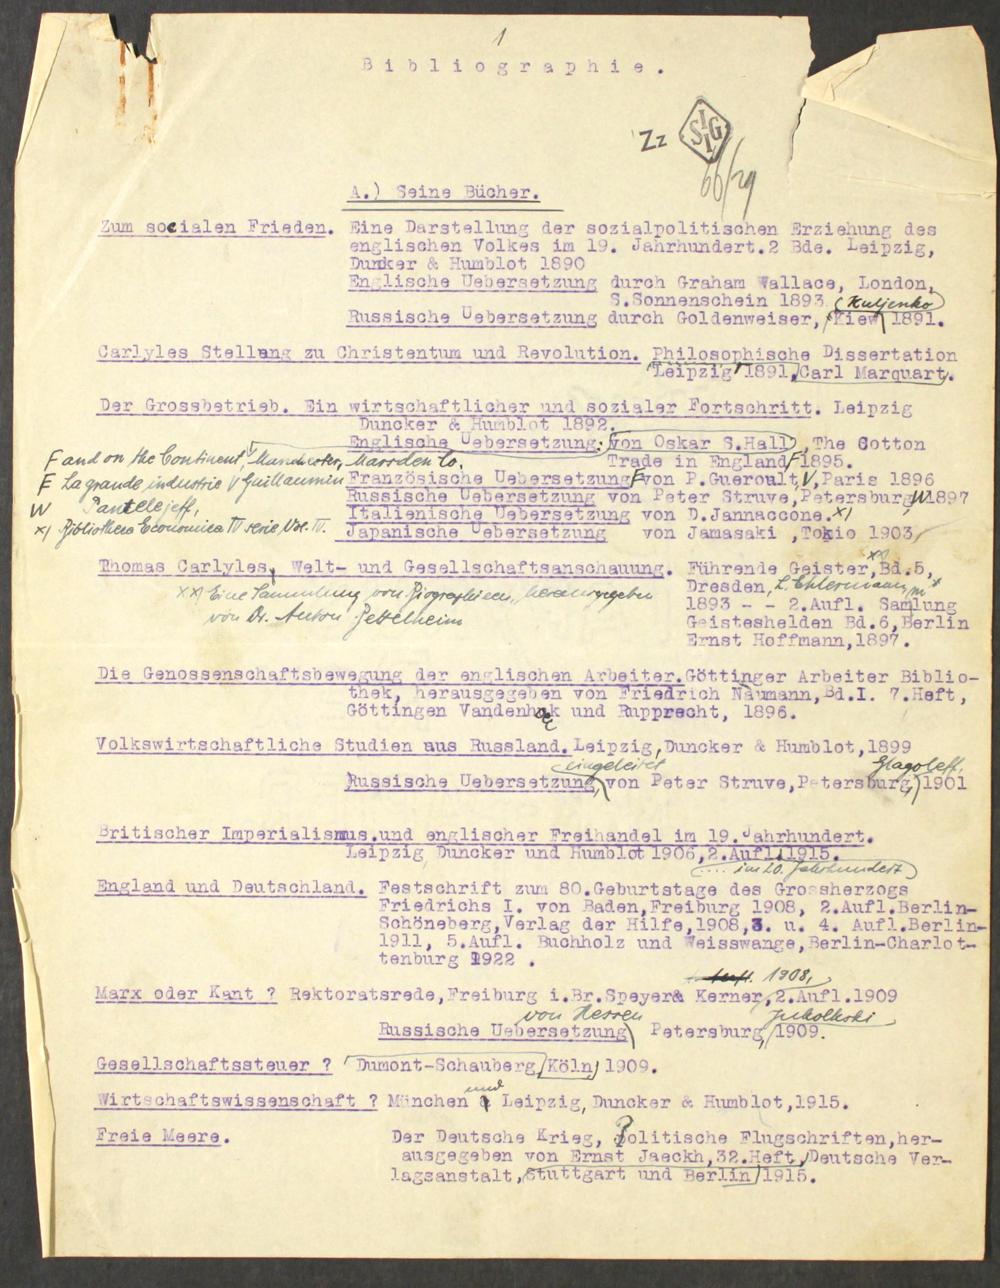 1
Bibliographie.
Zz SIGL
66/29
A.) Seine Bücher.
Zum socialen Frieden. Eine Darstellung der sozialpolitischen Erziehung des
englischen Volkes im 19. Jahrhundert.2 Bde. Leipzig,
Dunker & Humblot 1890
Englische Uebersetzung durch Graham Wallace, London,
S.Sonnenschein 1893 (Kuljenko)
Russische Uebersetzung durch Goldenweiser, Kiew 1891.
Carlyles Stellung zu Christentum und Revolution. Philosophische Dissertation
Leipzig 1891, Carl Marquart.
Der Grossbetrieb. Ein wirtschaftlicher und sozialer Fortschritt. Leipzig
Duncker & Humblot 1892.
Englische Uebersetzung: von Oskar S.Hall, The Cotton
F and on the Continent, Manchester, Marsden Co. Trade in England F 1895.
F La grande industrie V Guillaumin Französische Uebersetzung F von P.Gueroult V, Paris 1896
Russische Uebersetzung von Peter Struve, Petersburg W 1897
W Pantelejeff, Italienische Uebersetzung von D.Jannaccone. x)
x) Bibliotheca Economica IV serie, Vol. IV. Japanische Uebersetzung von Jamasaki , Tokio 1903,
Thomas Carlyles, Welt- und Gesellschaftsanschauung. Führende Geister, xx) Bd.5,
xx) Eine Sammlung von Biographieen, herausgegeben Dresden, L. Ehlermann,
von Dr. Anton Bettelheim 1893 - - 2.Aufl. Samlung
Geisteshelden Bd.6, Berlin
Ernst Hoffmann, 1897.
Die Genossenschaftsbewegung der englischen Arbeiter. Göttinger Arbeiter Biblio-
thek, herausgegeben von Friedrich Naumann, Bd.I. 7.Heft,
Göttingen Vandenhoek und Rupprecht, 1896.
Volkswirtschaftliche Studien aus Russland. Leipzig, Duncker & Humblot, 1899
eingeleitet Glagoleff,
Russische Uebersetzung, von Peter Struve, Petersburg, 1901
Britischer Imperialismus.und englischer Freihandel im 19.Jahrhundert.
Leipzig Duncker und Humblot 1906, 2.Aufl. 1915.
(.... im 20. Jahrhundert)
England und Deutschland. Festschrift zum 80.Geburtstage des Grossherzogs
Friedrichs I. von Baden, Freiburg 1908, 2.Aufl.Berlin-
Schöneberg, Verlag der Hilfe, 1908, 3. u. 4. Aufl.Berlin-
1911, 5.Aufl. Buchholz und Weisswange, Berlin-Charlot-
tenburg 1922 .
1908,
Marx oder Kant ? Rektoratsrede, Freiburg i.Br.Speyer& Kerner, 2.Aufl.1909
von Hessen
Russische Uebersetzung Petersburg, 1909.
Gesellschaftssteuer ? Dumont-Schauberg, Köln, 1909.
und
Wirtschaftswissenschaft ? München & Leipzig, Duncker & Humblot, 1915.
Freie Meere. Der Deutsche Krieg, Politische Flugschriften, her-
ausgegeben von Ernst Jaeckh, 32.Heft, Deutsche Ver-
lagsanstalt, Stuttgart und Berlin 1915.